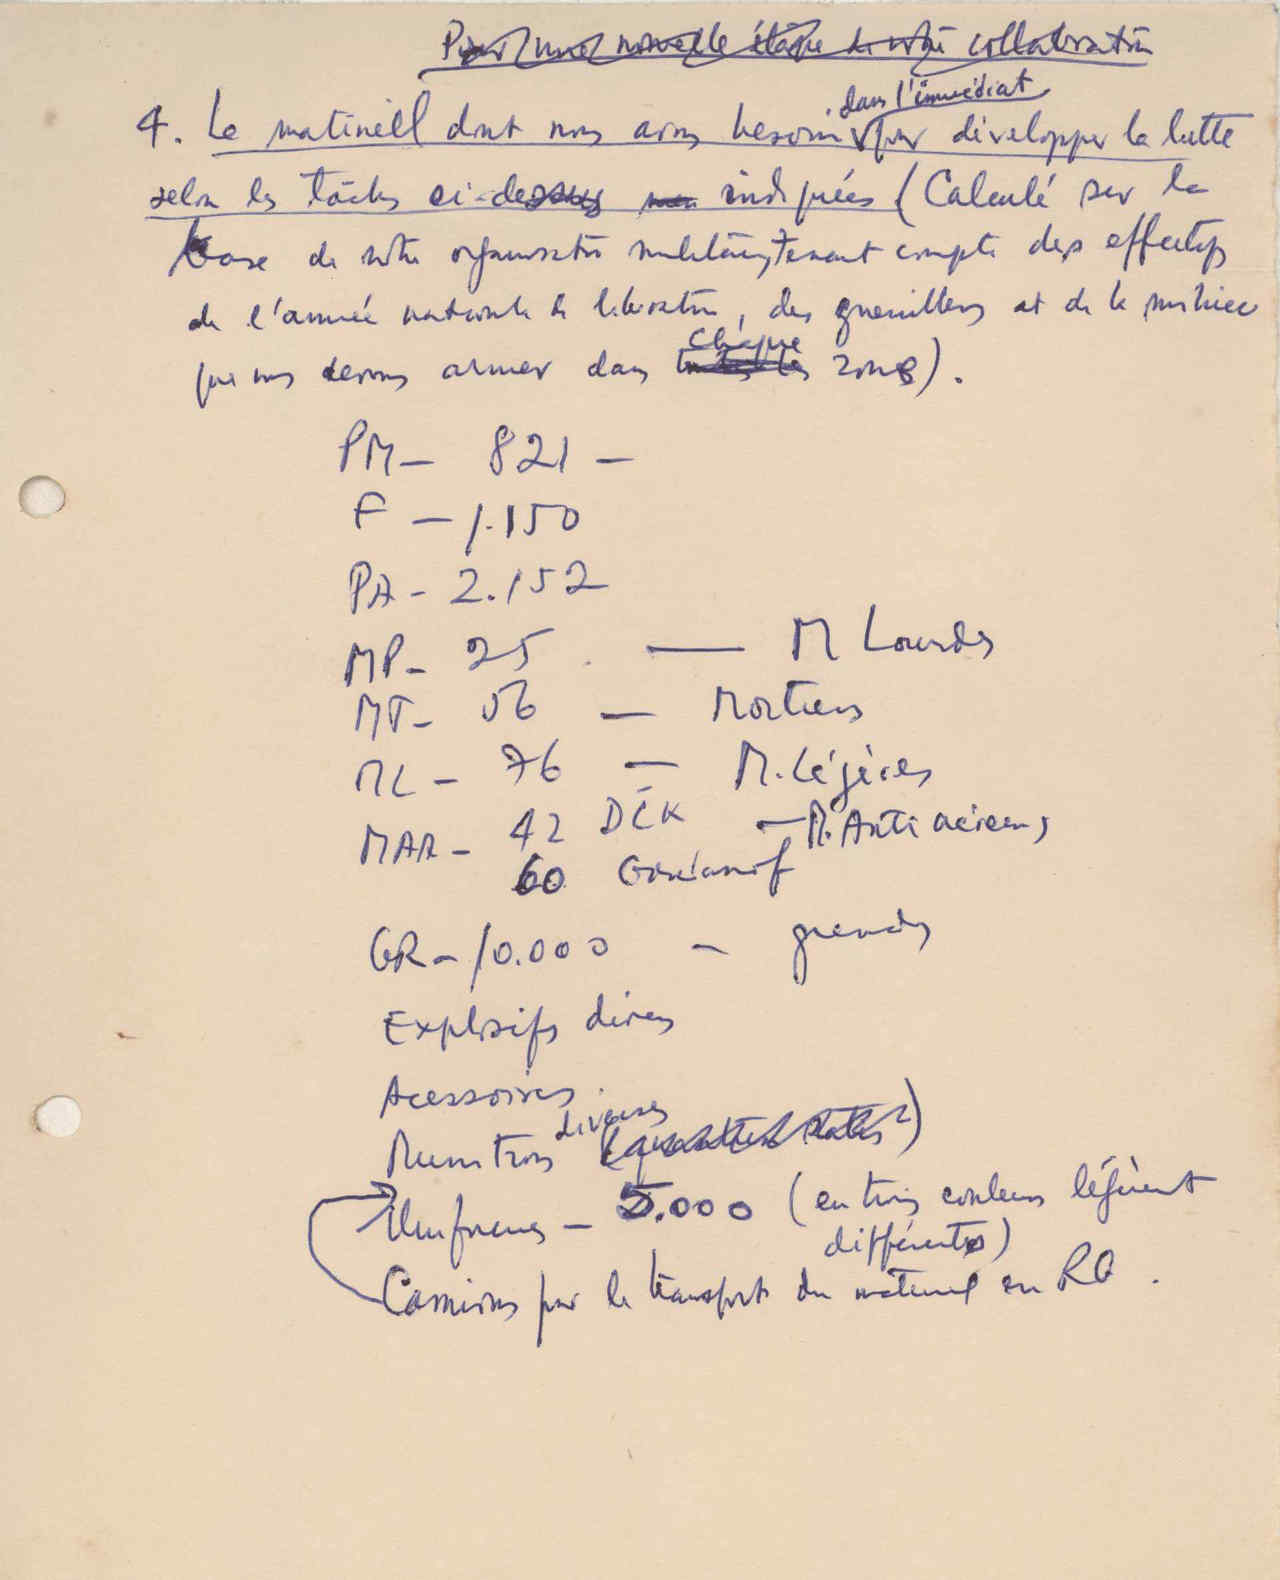 Pour une nouvelle étape de notre collaboration
dans l'immédiat
4. Le matiriell dont nous avons besoin pour développer la lutte
selon les tâches ci-dessus indiquées (Calculé sur la
base de notre organisation militaire, tenant compte des effectifs
de l'armée nationale de libération, des guerrilleros et de la milice
que nous devons armer dans chaque zone).
PM - 821 -
F - 1.150
PA - 2.152
MP - 25 — M Lourdes
MT - 56 — Mortiers
ML - 76 — M. Légères
MAA - 42 DCK — M. Anti aériens
60
GR - 10.000 - grenades
Explosifs divers
Acessoires.
Munitions diverses
Uniformes - 5.000 (en trois couleurs légèrent
différents)
Camions pour le transport du matériel en RG.